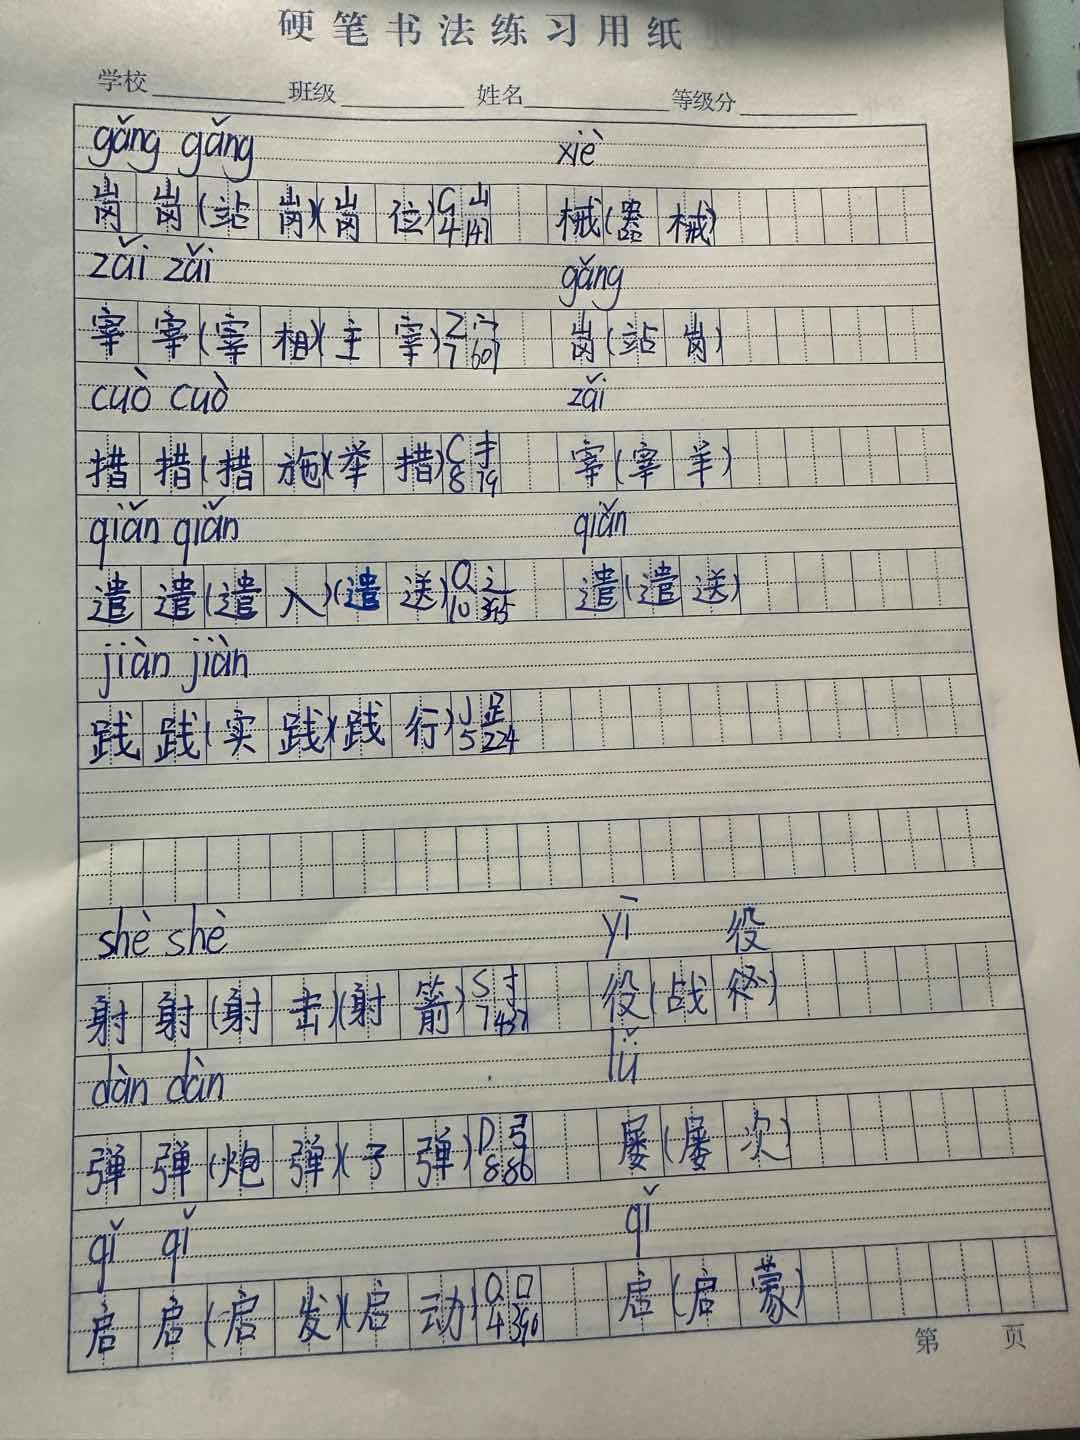 硬笔书法练习用纸
学校 班级 姓名 等级分
gǎng gǎng xiè
岗岗(站岗)(岗位)G山 械(器械)
4 147
zǎi zǎi gǎng
宰宰(宰相)(主宰)Z宀 岗(站岗)
7 607
cuò cuò zǎi
措措(措施)(举措)C扌 宰(宰羊)
8 79
qiǎn qiǎn qiǎn
遣遣(遣入)(遣送)Q辶 遣(遣送)
10 395
jiàn jiàn
践践(实践)(践行)J足
5 224
shè shè yī 役
射射(射击)(射箭)S寸 役(战役)
7 437
dàn dàn lǚ
弹弹(炮弹)(子弹)D弓 屡(屡次)
8 86
qǐ qǐ qǐ
启启(启发)(启动)Q口 启(启蒙)
4 390
第 页